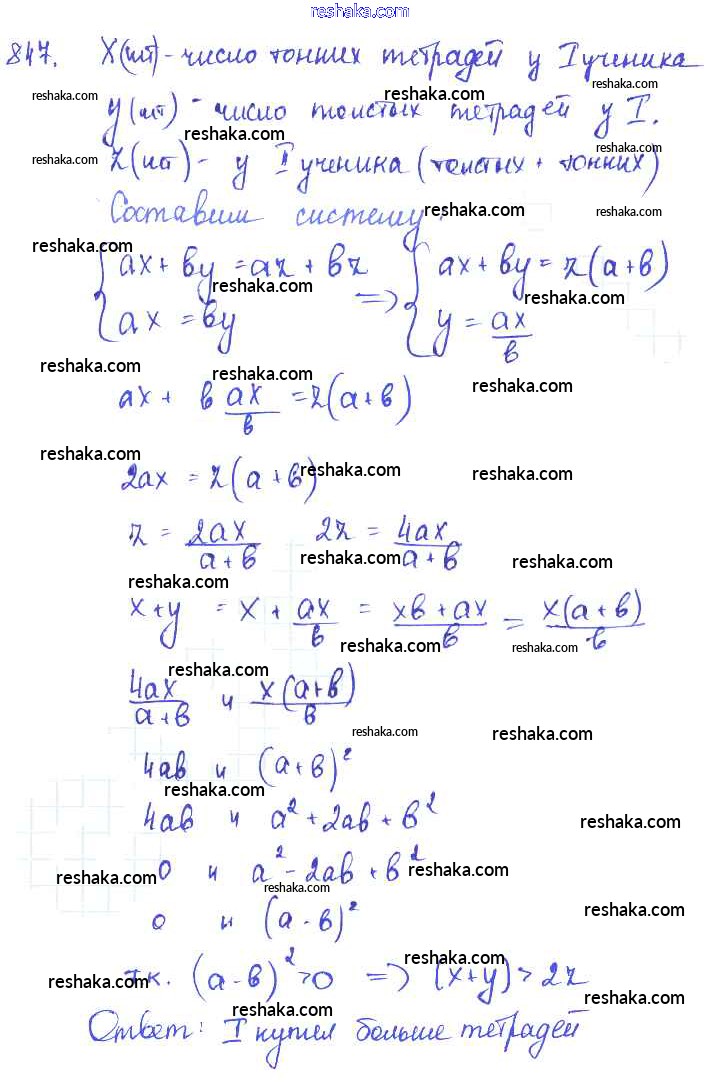 reshaka.com
847. X(шт) - число тонких тетрадей у I ученика
reshaka.com reshaka.com reshaka.com
y(шт) - число толстых тетрадей у I.
reshaka.com reshaka.com reshaka.com
z(шт) - у II ученика (толстых + тонких)
Составим систему:
reshaka.com reshaka.com
reshaka.com
ax + by = az + bz ax + by = z(a+b)
reshaka.com reshaka.com
ax = by => y = ax/b
reshaka.com reshaka.com reshaka.com
ax + b ax/b = z(a+b)
reshaka.com reshaka.com reshaka.com
2ax = z(a+b)
z = 2ax/(a+b) 2z = 4ax/(a+b)
reshaka.com reshaka.com
reshaka.com
x+y = x + ax/b = (xb + ax)/b = x(a+b)/b
reshaka.com reshaka.com
reshaka.com
4ax/(a+b) и x(a+b)/b
reshaka.com reshaka.com
4ab и (a+b)²
reshaka.com
4ab и a² + 2ab + b²
reshaka.com
0 и a² - 2ab + b²
reshaka.com reshaka.com
reshaka.com
0 и (a-b)²
reshaka.com
reshaka.com
т.к. (a-b)² > 0 => (x+y) > 2z
reshaka.com reshaka.com
reshaka.com
Ответ: I купил больше тетрадей